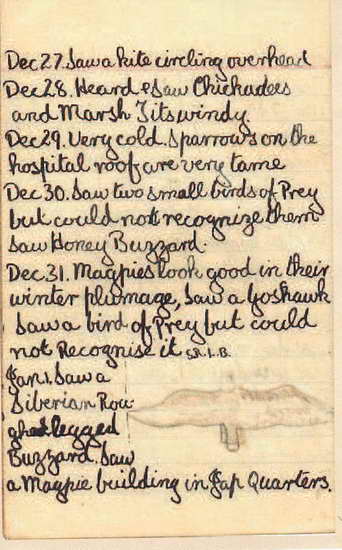 Dec 27. Saw a kite circling overhead
Dec 28. Heard & Saw Chickadees
and Marsh Tits windy.
Dec 29. Very cold. Sparrows on the
hospital roof are very tame
Dec 30. Saw two small birds of Prey
but could not recognize them
Saw Honey Buzzard.
Dec 31. Magpies look good in their
winter plumage, Saw a Goshawk
Saw a bird of Prey but could
not Recognise it S.R.I.B.
Jan 1. Saw a
Siberian Rou-
gh legged
Buzzard. Saw
a Magpie building in Jap Quarters.